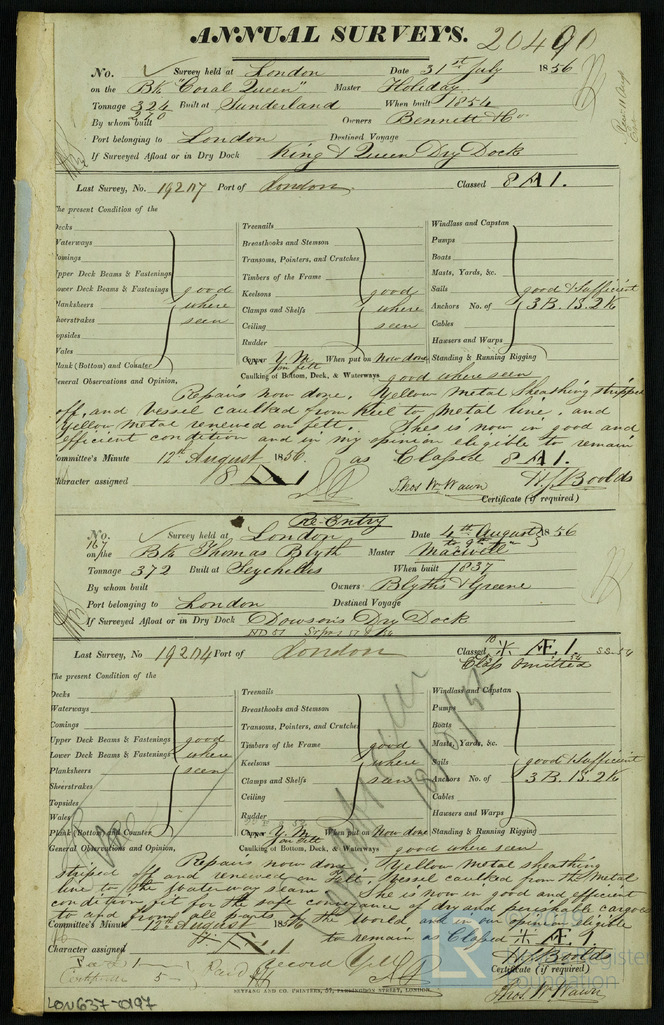 ANNUAL SURVEYS. 20490
No. Survey held at London Date 31st July 1856
on the Bk "Coral Queen" Master Holiday
Tonnage 324 Built at Sunderland When built 1854
By whom built Owners Bennett & Co.
Port belonging to London Destined Voyage
If Surveyed Afloat or in Dry Dock King & Queen Dry Dock
Last Survey, No. 19207 Port of London. Classed 8 A 1.
The present Condition of the
Decks
Waterways
Comings
Upper Deck Beams & Fastenings
Lower Deck Beams & Fastenings good
Planksheers where
Sheerstrakes seen
Topsides
Wales
Plank (Bottom) and Counter
Treenails
Breasthooks and Stemson
Transoms, Pointers, and Crutches
Timbers of the Frame
Keelsons good
Clamps and Shelfs where
Ceiling seen
Rudder
Copper Y.M. on felt When put on now done
Caulking of Bottom, Deck, & Waterways good where seen
Windlass and Capstan
Pumps
Boats
Masts, Yards, &c.
Sails good & sufficient
Anchors No. of 3 B. 1 S. 2 K
Cables
Hawsers and Warps
Standing & Running Rigging
General Observations and Opinion,
Repairs now done. Yellow Metal Sheathing stripped
off, and vessel caulked from keel to Metal line, and
Yellow metal renewed on felt. She is now in good and
efficient condition and in my opinion eligible to remain
Committee's Minute 12th August 1856. as Classed 8 A 1.
Character assigned 8 A 1 Thos. W. Wawn H. J. Boolds
Certificate (if required)
Re-Entry
No. 167 Survey held at London Date 4th August 1856
on the Bk Thomas Blyth Master
Tonnage 372 Built at Seychelles When built 1837
By whom built Owners Blyths & Greene
Port belonging to London Destined Voyage
If Surveyed Afloat or in Dry Dock Dowson's Dry Dock
Last Survey, No 19204 Port of London Classed Æ 1. SS. 54
Class omitted
The present Condition of the
Decks
Waterways
Comings
Upper Deck Beams & Fastenings good
Lower Deck Beams & Fastenings where
Planksheers seen
Sheerstrakes
Topsides
Wales
Plank (Bottom) and Counter
Treenails
Breasthooks and Stemson
Transoms, Pointers, and Crutches
Timbers of the Frame good
Keelsons where
Clamps and Shelfs seen
Ceiling
Rudder
Copper Y.M. on felt When put on Now done
Caulking of Bottom, Deck, & Waterways good where seen
Windlass and Capstan
Pumps
Boats
Masts, Yards, &c.
Sails good & Sufficient
Anchors No. of 3 B. 1 S. 2 K
Cables
Hawsers and Warps
Standing & Running Rigging
General Observations and Opinion,
Repairs now done. Yellow Metal sheathing
striped off and renewed on Felt. Vessel caulked from the Metal
line to the Waterway seam. She is now in good and efficient
condition fit for the safe conveyance of dry and perishable cargoes
to and from all parts of the World and in our opinion eligible
Committee's Minute 12th August 1856 to remain as Classed Æ 1.
Character assigned H. J. Boolds
Certificate (if required)
Certificate 5-
Thos. W. Wawn
SEYFANG AND CO. PRINTERS, 57, FARRINGDON STREET, LONDON.
LON637-0197